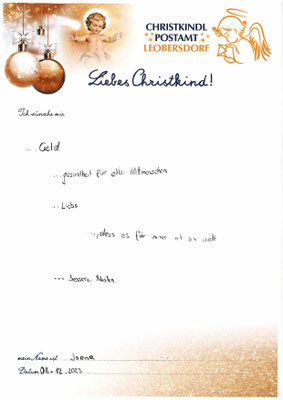 CHRISTKINDL
POSTAMT
LEOBERSDORF
Liebes Christkind!
Ich wünsche mir
...Geld
...gesundheit für alle Mitmenschen
...Liebe
...dass es für immer
... bessere Noten
mein Name ist Irene
Datum 12. 2023